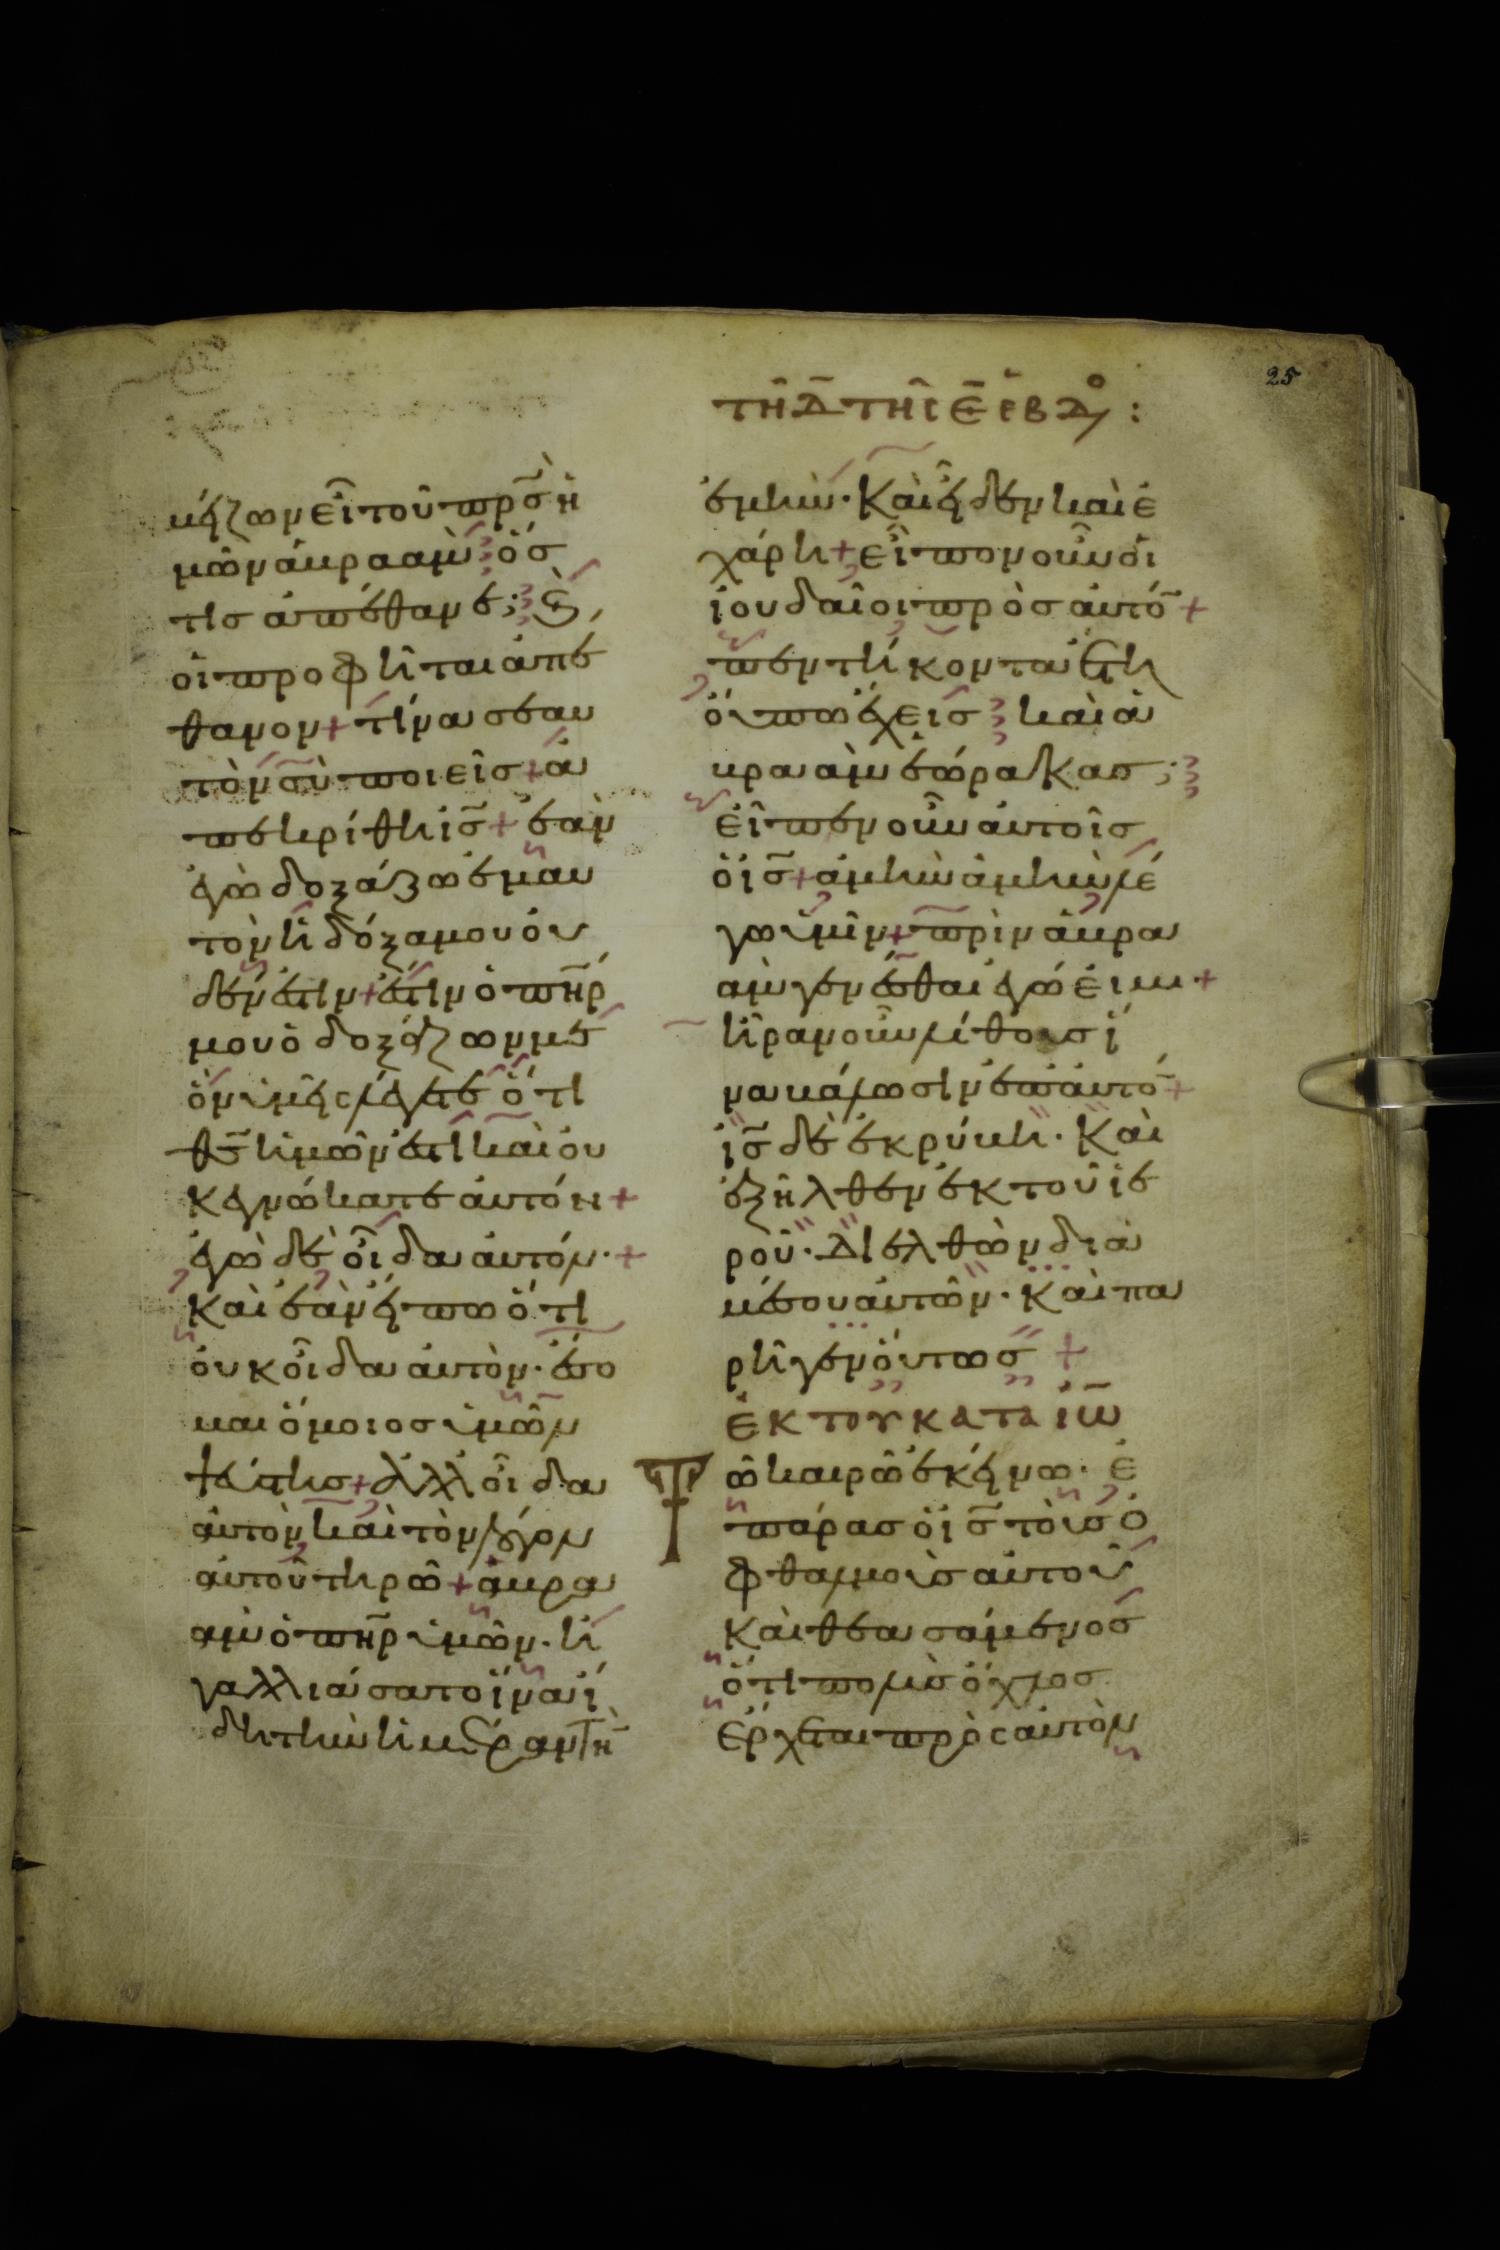 25
μείζων εἶ τοῦ πρ̅σ ἡ
μῶν ἀβρααμ· ὅσ
τισ ἀπέθανε; καὶ
οἱ προφῆται ἀπέ
θανον + τίνα σεαυ
τὸν σὺ ποιεῖσ + ἀ
πεκρίθη ι̅σ + ἐὰν
ἐγὼ δοξάζω ἐμαυ
τὸν ἡ δόξα μου οὐ
δέν ἐστιν + ἔστιν ὁ π̅η̅ρ
μου ὁ δοξάζων με
ὃν ὑμεῖς λέγετε ὅτι
θ̅σ ἡμῶν ἐστὶ καὶ οὐ
κ ἐγνώκατε αὐτόν +
ἐγὼ δὲ οἶδα αὐτόν· +
Καὶ ἐὰν εἴπω ὅτι
οὐκ οἶδα αὐτὸν· ἔσο
μαι ὅμοιοσ ὑμῶν
ψεύστησ + ἀλλ οἶδα
αὐτὸν καὶ τὸν λόγον
αὐτοῦ τηρῶ + ἀβρα
ὰμ ὁ π̅η̅ρ ὑμῶν· ἠ
γαλλιάσατο ἵνα ἴ
δη τὴν ἡμέραν τὴ
τῆ δ̅ τῆς ε̅ ἑβδο :
ἐμὴν· Καὶ εἶδεν καὶ ἐ
χάρη + εἶπον οὖν οἱ
ἰουδαῖοι πρὸσ αὐτο̅ +
πεντήκοντα ἔτη
οὔπω ἔχεισ καὶ ἀ
βρααμ ἑώρακασ;
εἶπεν οὖν αὐτοῖσ
ὁ ι̅σ + ἀμὴν ἀμὴν λέ
γω ὑμῖν + πρὶν ἀβρα
ὰμ γενέσθαι ἐγώ εἰμι +
ἦραν οὖν λίθουσ ἵ
να βάλωσιν ἐπ αὐτο̅ +
ι̅σ δὲ ἐκρύβη· Καὶ
ἐξῆλθεν ἐκ τοῦ ἱε
ροῦ· Διελθὼν διὰ
μέσου αὐτῶν· Καὶ πα
ρῆγεν ὄντωσ +
ἐκ του κατα ιω̅
Τῶ καιρῶ ἐκείνω· ἐ
πάρασ ὁ ι̅σ τοὺσ ὀ
φθαλμοὺσ αὐτοῦ
Καὶ θεασάμενοσ
ὅτι πολὺσ ὄχλοσ
ἔρχεται πρὸς αὐτὸν